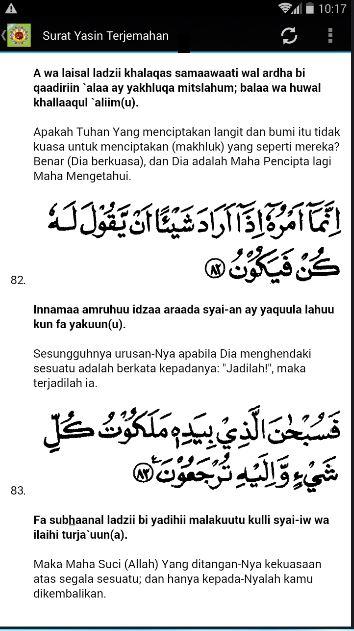 10:17
Surat Yasin Terjemahan
A wa laisal ladzii khalaqas samaawaati wal ardha bi
qaadiriin `alaa ay yakhluqa mitslahum; balaa wa huwal
khallaaqul `aliim(u).
Apakah Tuhan Yang menciptakan langit dan bumi itu tidak
kuasa untuk menciptakan (makhluk) yang seperti mereka?
Benar (Dia berkuasa), dan Dia adalah Maha Pencipta lagi
Maha Mengetahui.
اِنَّمَآ اَمْرُهٗٓ اِذَآ اَرَادَ شَيْـًٔا اَنْ يَّقُوْلَ لَهٗ
كُنْ فَيَكُوْنُ ﴿٨٢﴾
82.
Innamaa amruhuu idzaa araada syai-an ay yaquula lahuu
kun fa yakuun(u).
Sesungguhnya urusan-Nya apabila Dia menghendaki
sesuatu adalah berkata kepadanya: "Jadilah!", maka
terjadilah ia.
فَسُبْحٰنَ الَّذِيْ بِيَدِهٖ مَلَكُوْتُ كُلِّ
شَيْءٍ وَّاِلَيْهِ تُرْجَعُوْنَ ﴿٨٣﴾
83.
Fa subhaanal ladzii bi yadihii malakuutu kulli syai-iw wa
ilaihi turja`uun(a).
Maka Maha Suci (Allah) Yang ditangan-Nya kekuasaan
atas segala sesuatu; dan hanya kepada-Nyalah kamu
dikembalikan.